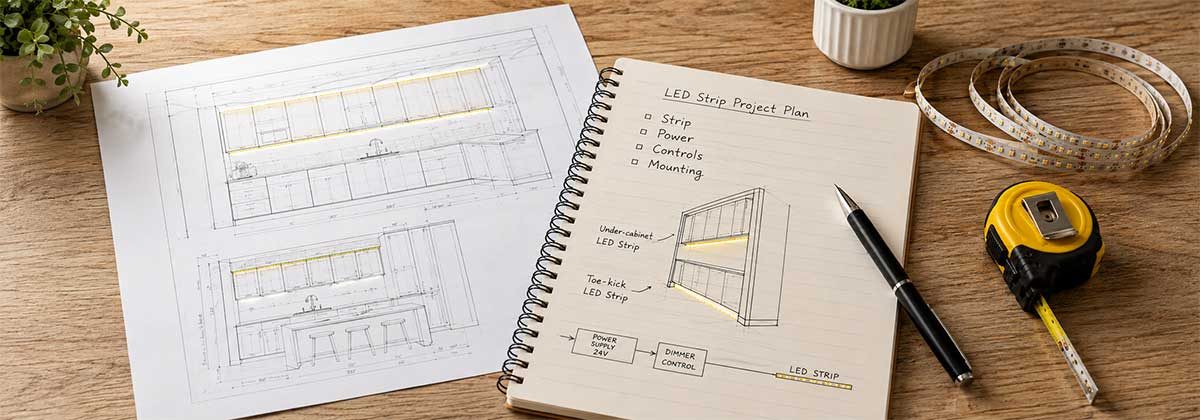 LED Strip Project Plan
Strip
Power
Controls
Mounting
Under-cabinet
LED Strip
Toe-kick
LED Strip
POWER
SUPPLY
24V
DIMMER
CONTROL
LED STRIP